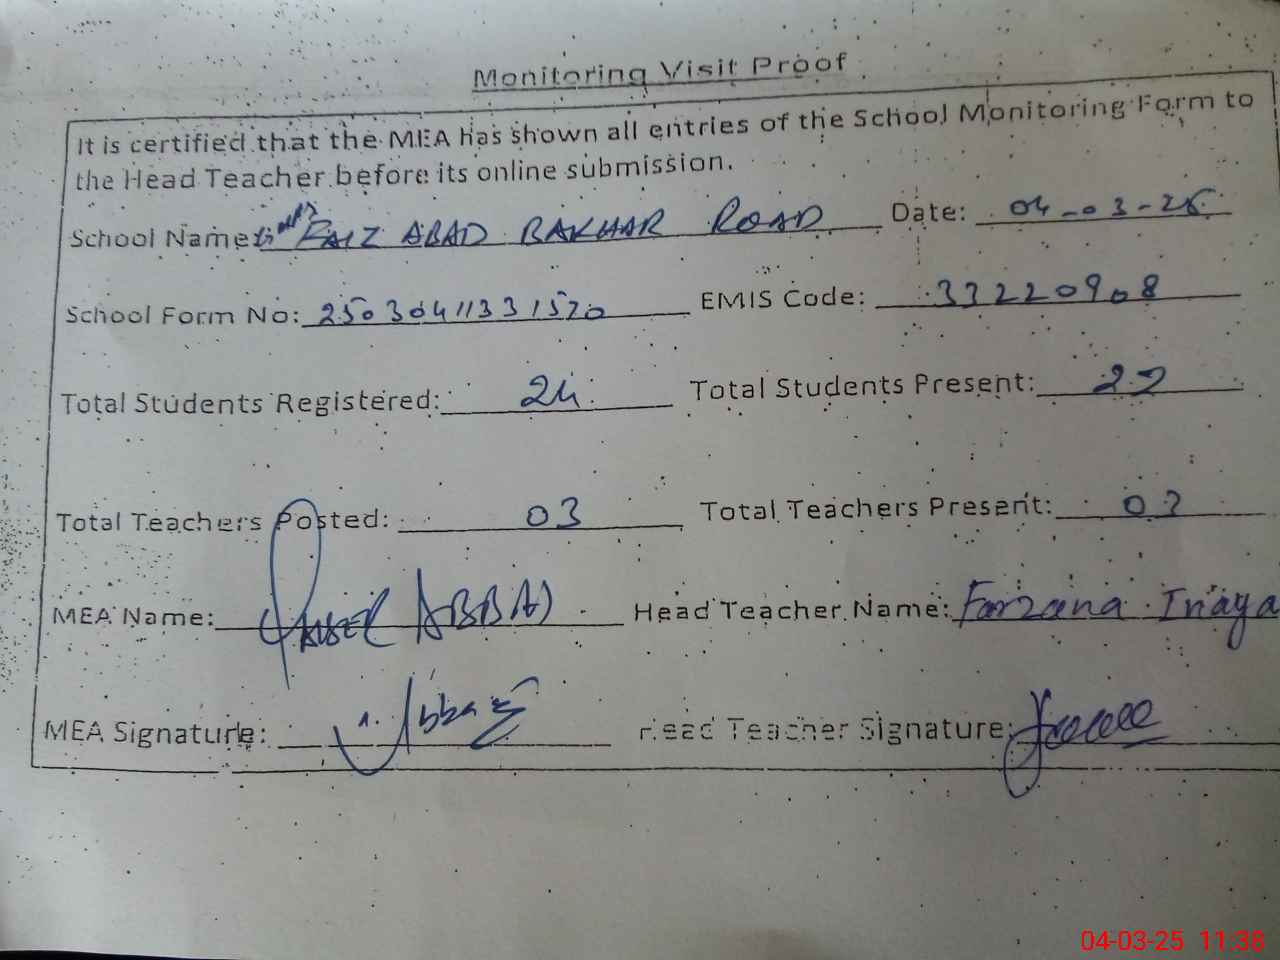 Monitoring Visit Proof
It is certified that the MEA has shown all entries of the School Monitoring Form to
the Head Teacher before its online submission.
School Name: FAIZ ABAD BAKHAR ROAD Date: 04-03-25
School Form No: 25030411331520 EMIS Code: 33220908
Total Students Registered: 24 Total Students Present: 22
Total Teachers Posted: 03 Total Teachers Present: 03
MEA Name: ABBAS Head Teacher Name: Farzana Inaya
MEA Signature: Abbas Head Teacher Signature:
04-03-25 11:38